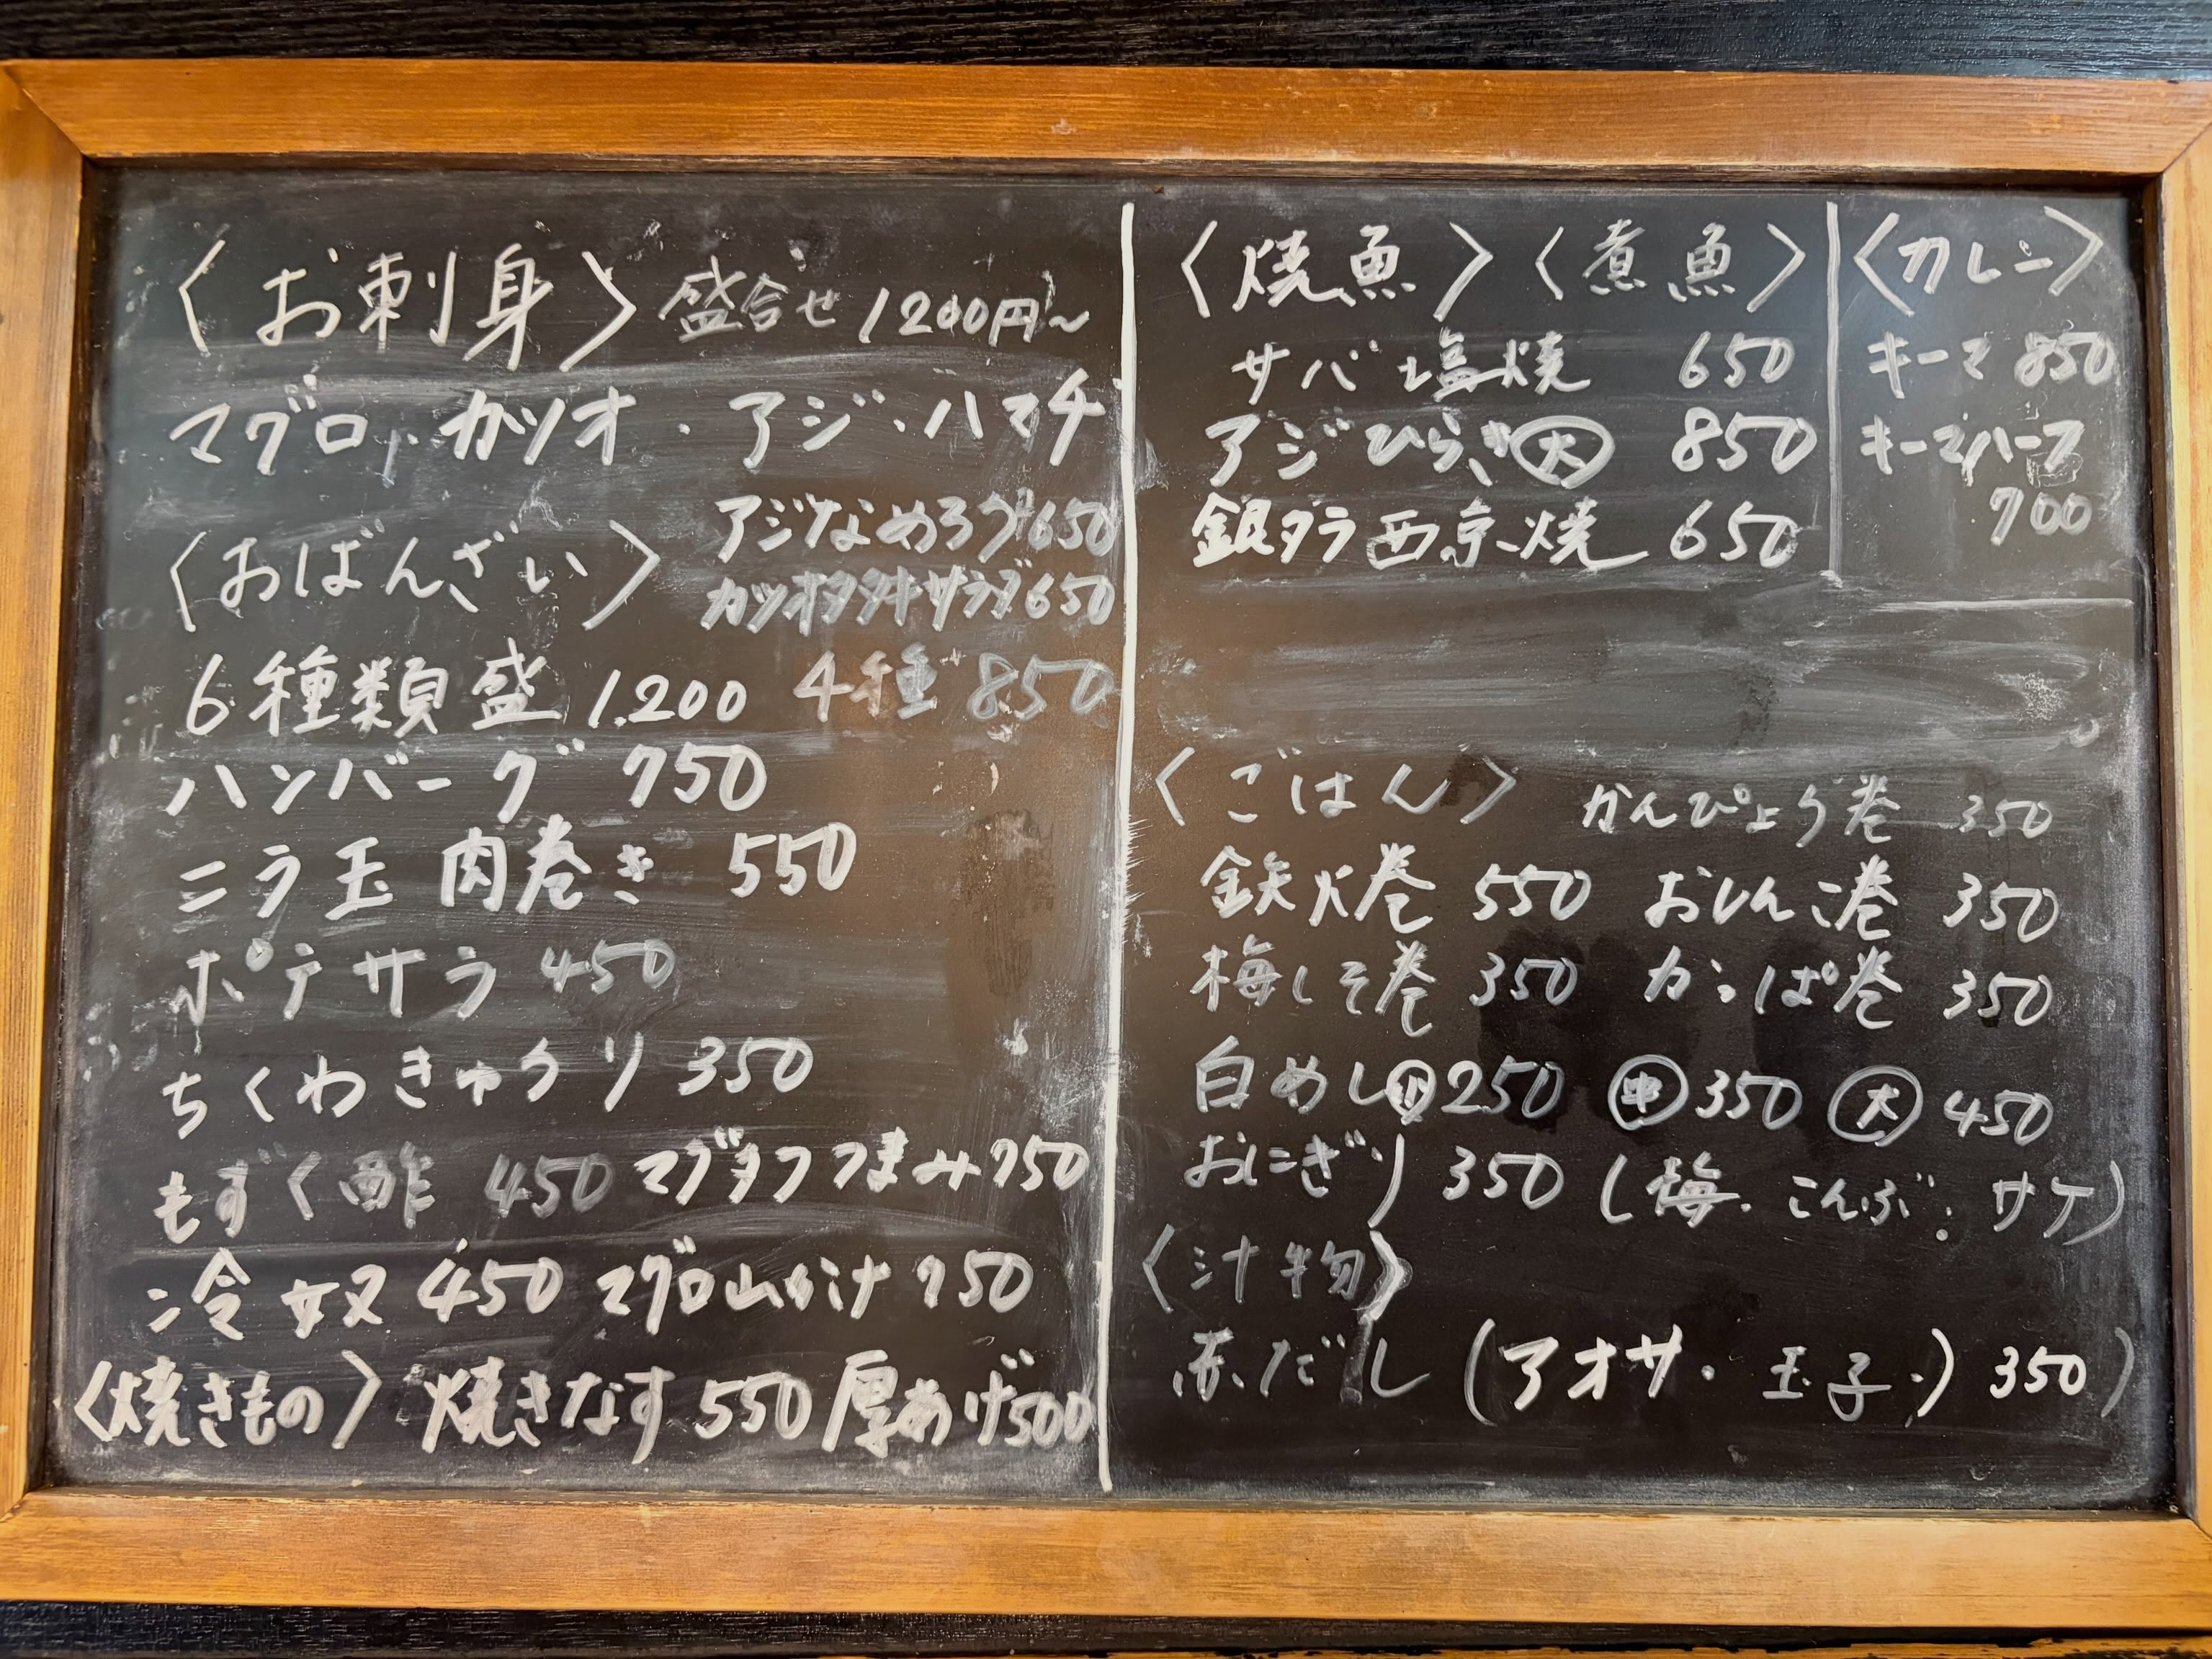 〈お刺身〉盛合せ 1200円～
マグロ・カツオ・アジ・ハマチ
アジなめろう650
〈おばんざい〉
カツオタタキサラダ650
6種類盛 1.200 4種 850
ハンバーグ 750
ニラ玉肉巻き 550
ポテサラ 450
ちくわきゅうり 350
もずく酢 450 マグタクつまみ750
冷奴 450 マグロ山かけ 750
〈焼きもの〉焼きなす 550 厚あげ500
〈焼魚〉〈煮魚〉
サバ塩焼 650
アジひらき大 850
銀ダラ西京焼 650
〈カレー〉
キーマ 850
キーマハーフ
700
〈ごはん〉かんぴょう巻 350
鉄火巻 550 おしんこ巻 350
梅しそ巻 350 かっぱ巻 350
白めし小250 中350 大450
おにぎり 350 (梅・こんぶ・サケ)
〈汁物〉
赤だし (アオサ・玉子・) 350)